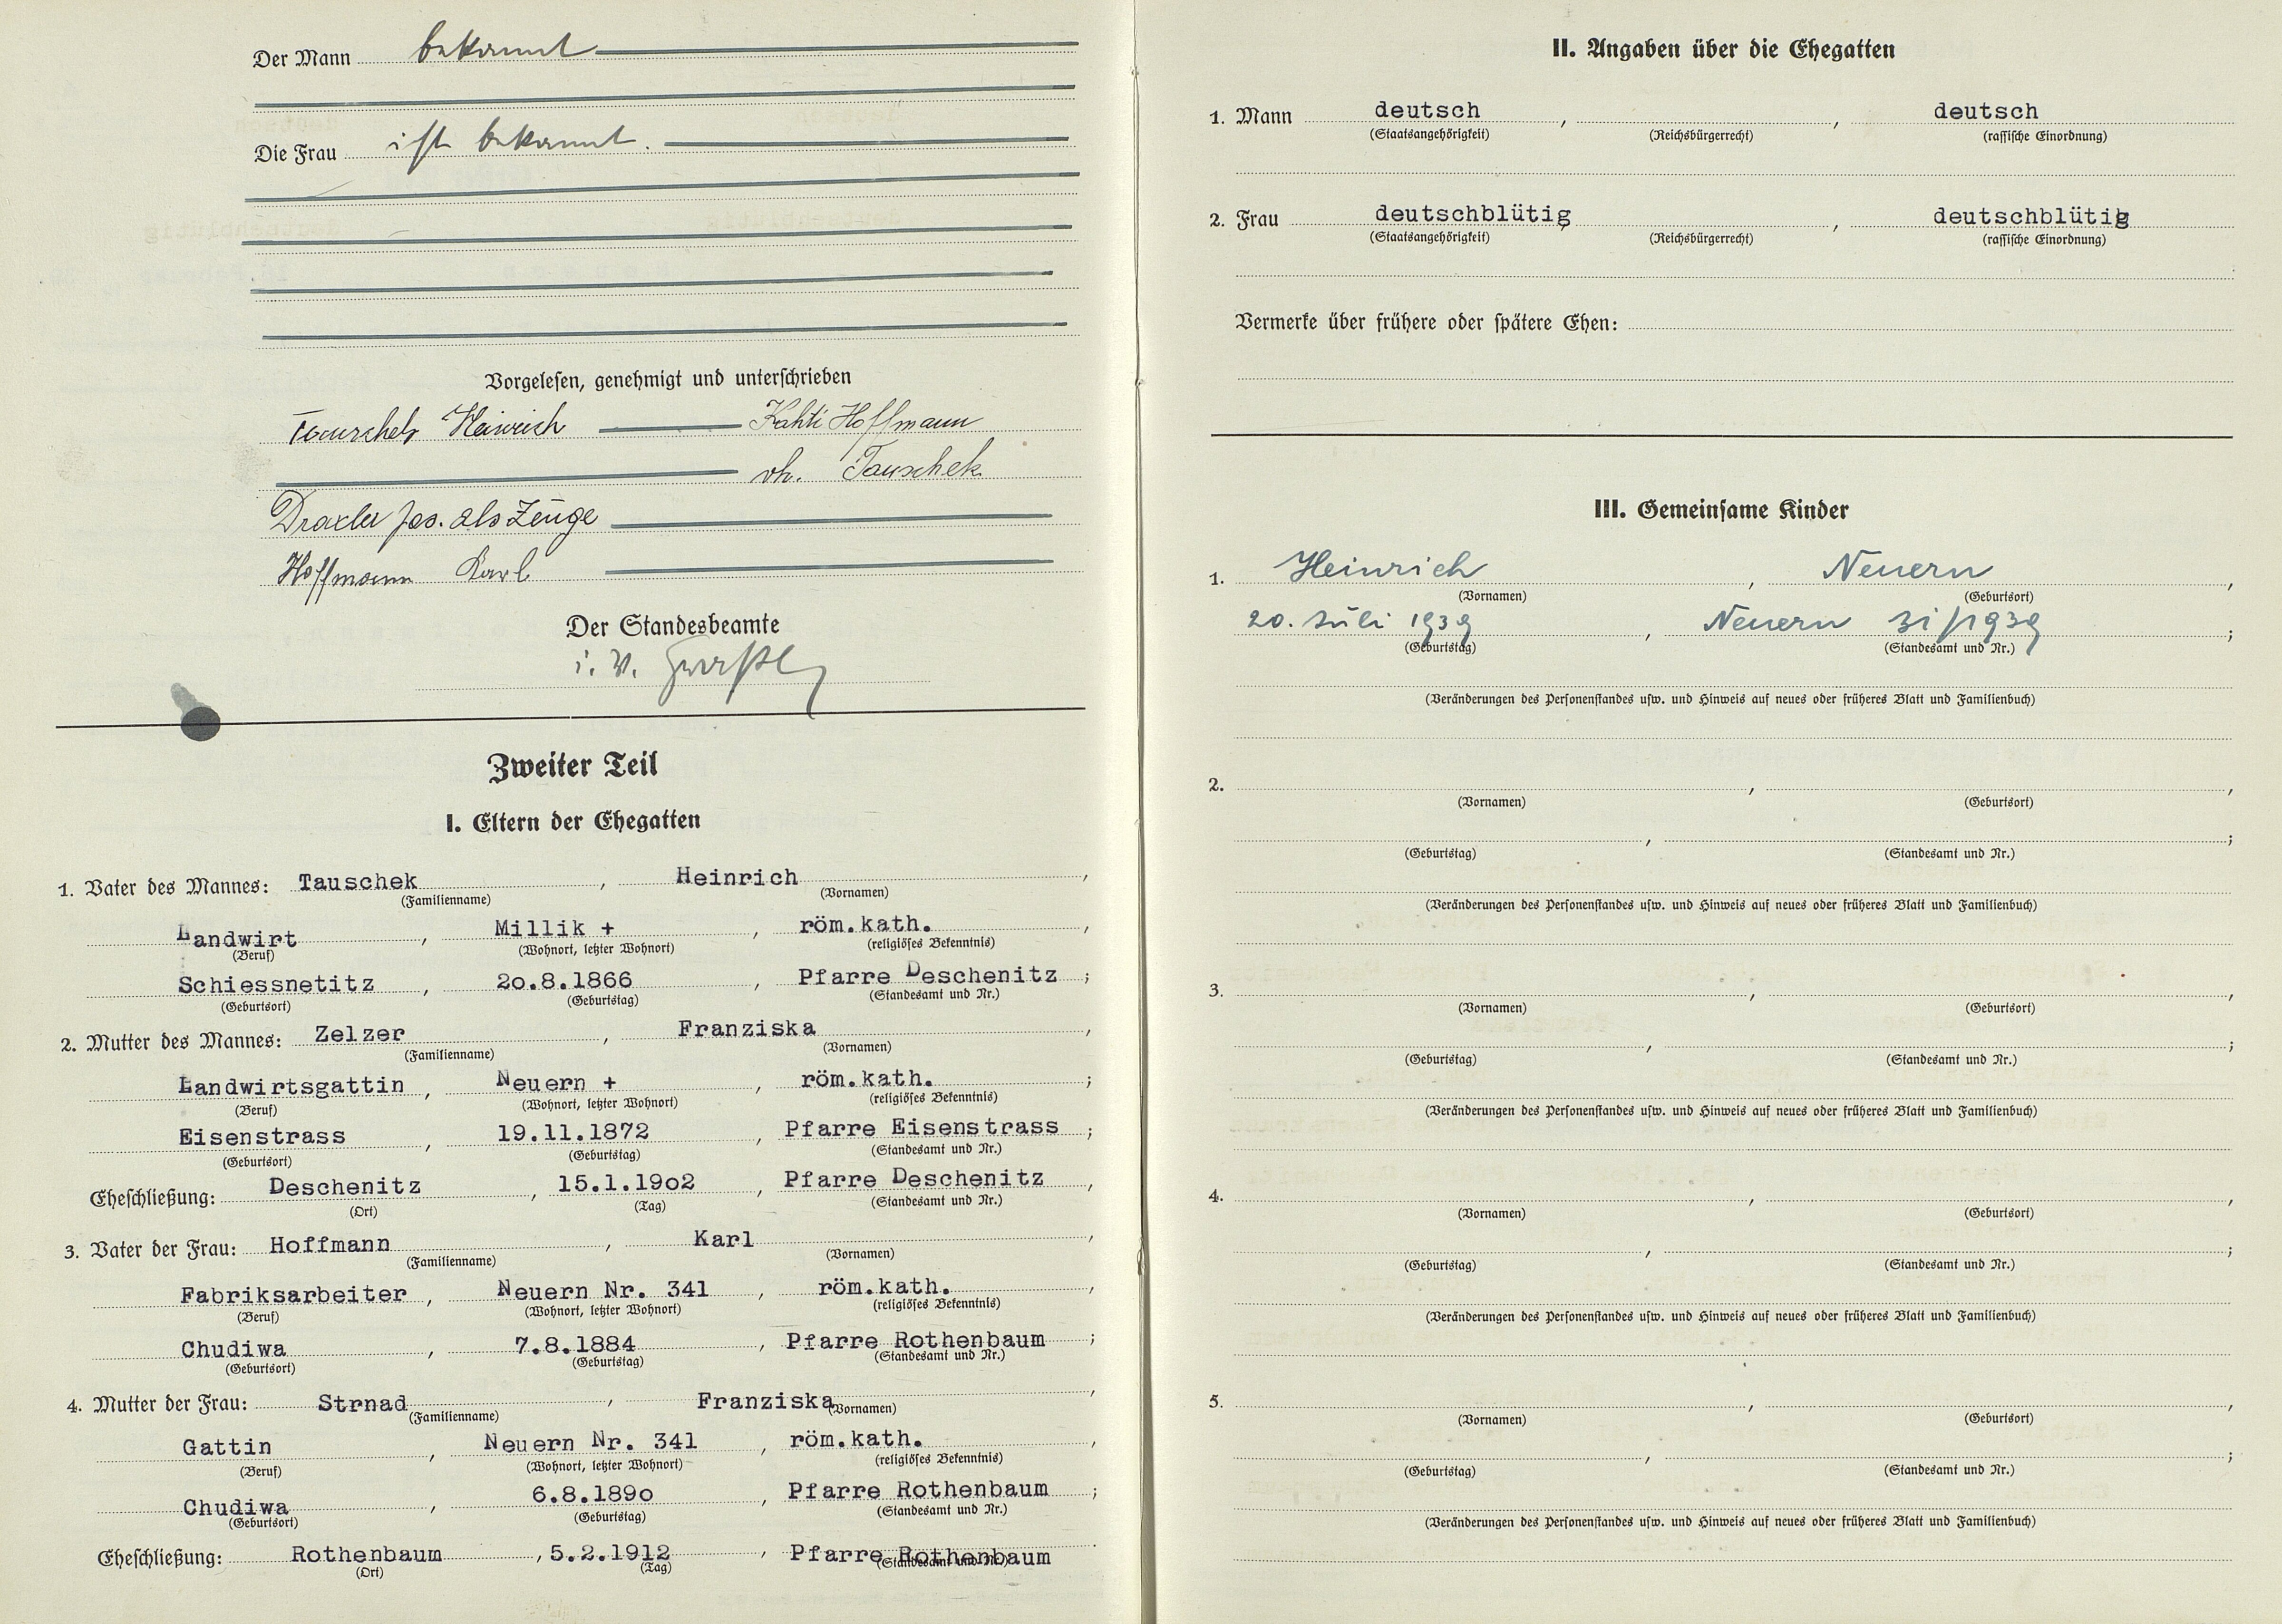 Der Mann bekannt
Die Frau ist bekannt.
Vorgelesen, genehmigt und unterschrieben
Tauschek Heinrich Kathi Hoffmann
vh. Tauschek
Draxler Jos. als Zeuge
Hoffmann Karl
Der Standesbeamte
i. V.
Zweiter Teil
I. Eltern der Ehegatten
1. Vater des Mannes: Tauschek, Heinrich,
(Familienname) (Vornamen)
Landwirt, Millik +, röm.kath.,
(Beruf) (Wohnort, letzter Wohnort) (religiöses Bekenntnis)
Schiessnetitz, 2o.8.1866, Pfarre Deschenitz;
(Geburtsort) (Geburtstag) (Standesamt und Nr.)
2. Mutter des Mannes: Zelzer, Franziska,
(Familienname) (Vornamen)
Landwirtsgattin, Neuern +, röm.kath.;
(Beruf) (Wohnort, letzter Wohnort) (religiöses Bekenntnis)
Eisenstrass, 19.11.1872, Pfarre Eisenstrass;
(Geburtsort) (Geburtstag) (Standesamt und Nr.)
Eheschließung: Deschenitz, 15.1.19o2, Pfarre Deschenitz,
(Ort) (Tag) (Standesamt und Nr.)
3. Vater der Frau: Hoffmann, Karl,
(Familienname) (Vornamen)
Fabriksarbeiter, Neuern Nr. 341, röm.kath.,
(Beruf) (Wohnort, letzter Wohnort) (religiöses Bekenntnis)
Chudiwa, 7.8.1884, Pfarre Rothenbaum;
(Geburtsort) (Geburtstag) (Standesamt und Nr.)
4. Mutter der Frau: Strnad, Franziska,
(Familienname) (Vornamen)
Gattin, Neuern Nr. 341, röm.kath.,
(Beruf) (Wohnort, letzter Wohnort) (religiöses Bekenntnis)
Chudiwa, 6.8.189o, Pfarre Rothenbaum;
(Geburtsort) (Geburtstag) (Standesamt und Nr.)
Eheschließung: Rothenbaum, 5.2.1912, Pfarre Rothenbaum
(Ort) (Tag) (Standesamt und Nr.)
II. Angaben über die Ehegatten
1. Mann deutsch, , deutsch
(Staatsangehörigkeit) (Reichsbürgerrecht) (rassische Einordnung)
2. Frau deutschblütig , deutschblütig
(Staatsangehörigkeit) (Reichsbürgerrecht) (rassische Einordnung)
Vermerke über frühere oder spätere Ehen:
III. Gemeinsame Kinder
1. Heinrich, Neuern,
(Vornamen) (Geburtsort)
20. Juli 1939, Neuern 31/1939;
(Geburtstag) (Standesamt und Nr.)
(Veränderungen des Personenstandes usw. und Hinweis auf neues oder früheres Blatt und Familienbuch)
2. , ,
(Vornamen) (Geburtsort)
, ;
(Geburtstag) (Standesamt und Nr.)
(Veränderungen des Personenstandes usw. und Hinweis auf neues oder früheres Blatt und Familienbuch)
3. , ,
(Vornamen) (Geburtsort)
, ;
(Geburtstag) (Standesamt und Nr.)
(Veränderungen des Personenstandes usw. und Hinweis auf neues oder früheres Blatt und Familienbuch)
4. , ,
(Vornamen) (Geburtsort)
, ;
(Geburtstag) (Standesamt und Nr.)
(Veränderungen des Personenstandes usw. und Hinweis auf neues oder früheres Blatt und Familienbuch)
5. , ,
(Vornamen) (Geburtsort)
, ;
(Geburtstag) (Standesamt und Nr.)
(Veränderungen des Personenstandes usw. und Hinweis auf neues oder früheres Blatt und Familienbuch)